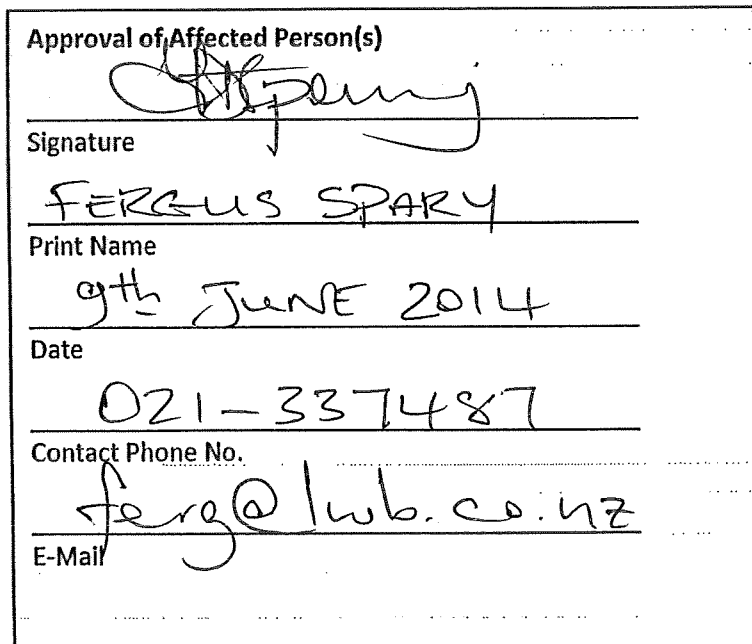 Approval of Affected Person(s)
Signature
FERGUS SPARY
Print Name
9th JUNE 2014
Date
021-337487
Contact Phone No.
ferg@lwb.co.nz
E-Mail